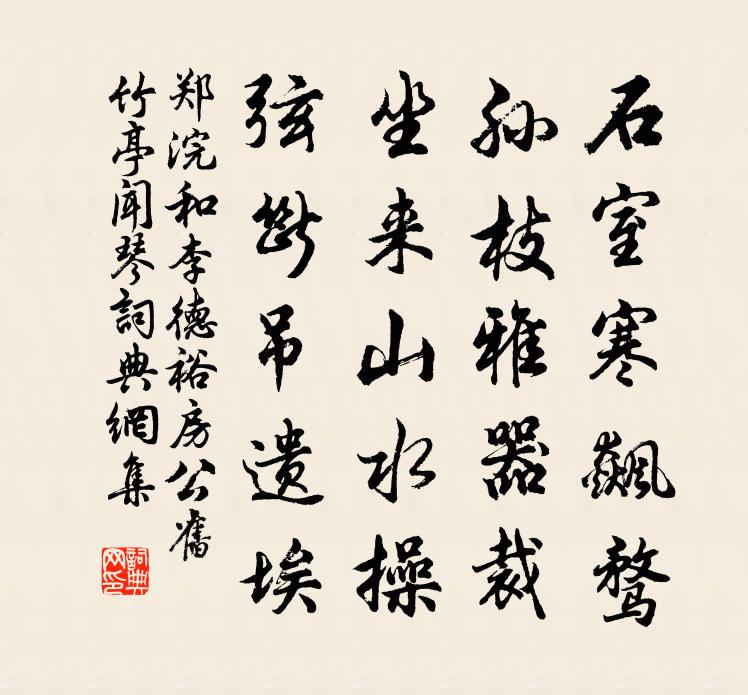 石室寒飆
孙枝雅器裁
坐来山水操
弦斷吊遗埃
郑浣和李德裕房公舊
竹亭闻琴詞典網集
詞典
网印